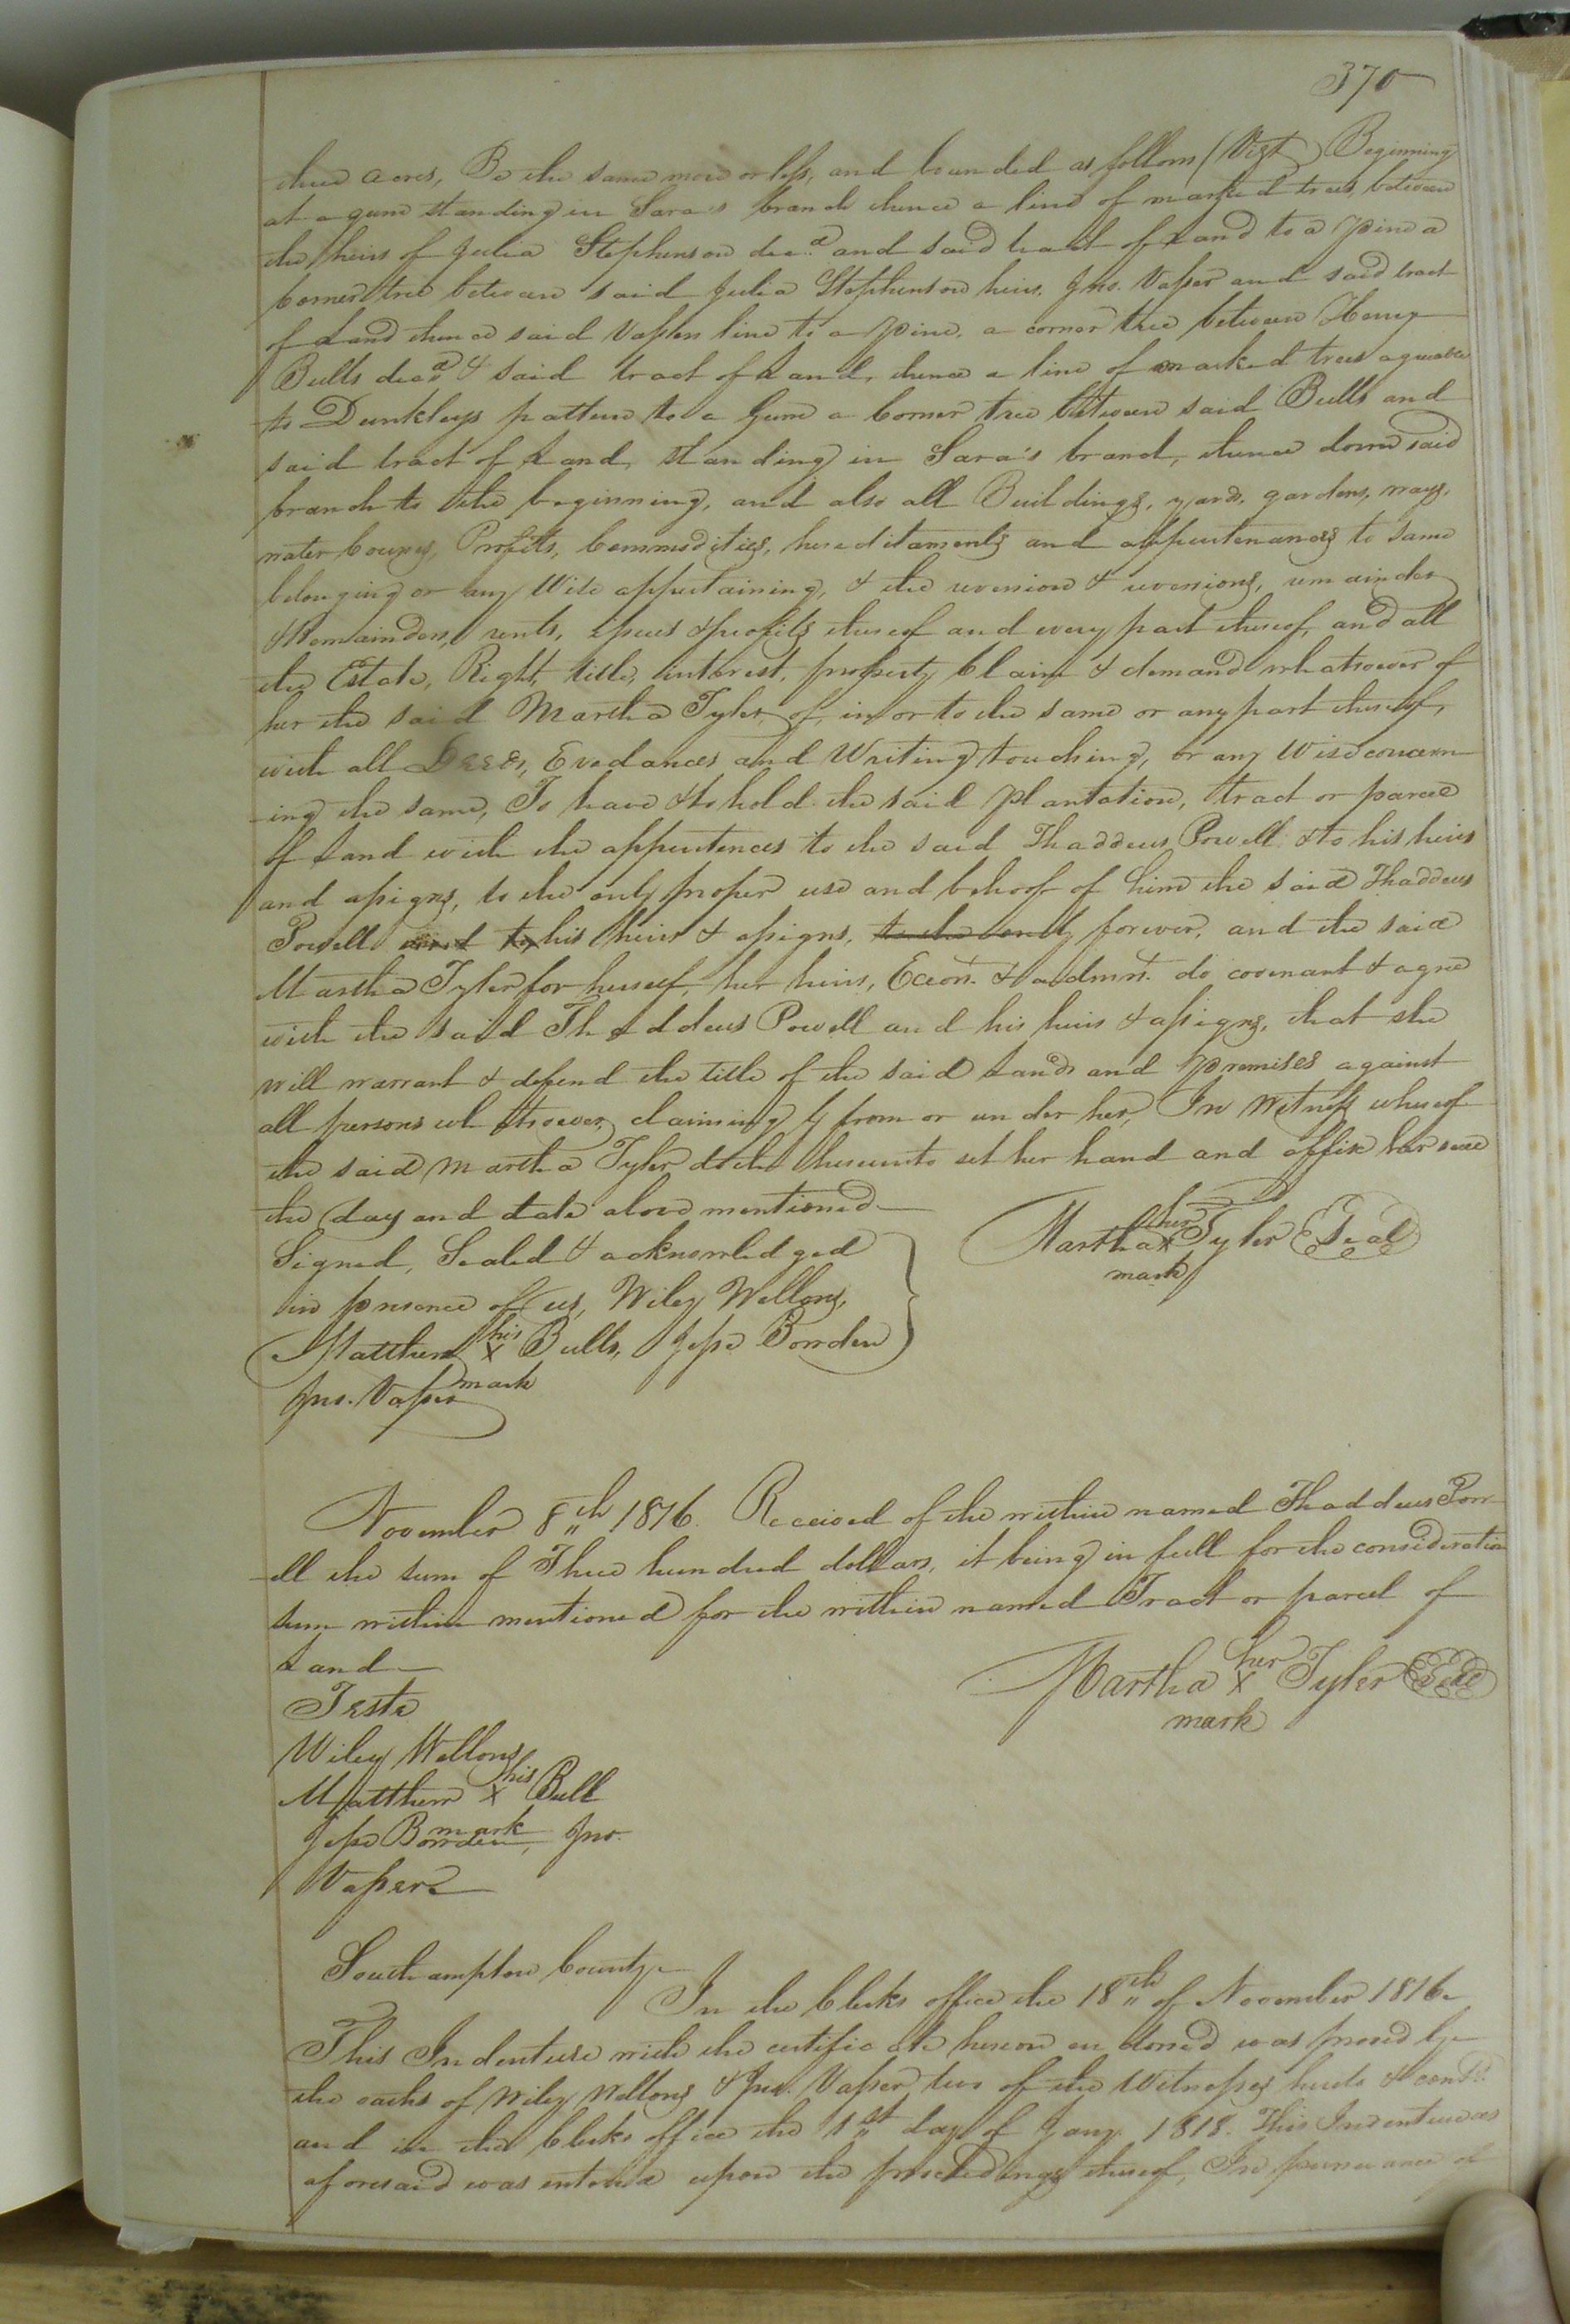 370
three acres, Be the same more or less, and bounded as follows (Vizt) Beginning
at a gum standing in Sara's branch thence a line of marked trees, between
the heirs of Julia Stephenson decd. and said tract of Land to a pine a
corner tree between said Julia Stephenson heirs, Jno. Vasser and said tract
of Land thence said Vassers line to a pine, a corner tree between Henry
Bulls decd. & said tract of Land, thence a line of marked trees agreeable
to Dunkleys pattern to a Gum a corner tree between said Bulls and
said tract of Land, standing in Sara's branch, thence down said
branch to the beginning, and also all Buildings, yards, gardens, ways,
water Courses, Profits, Commodities, hereditaments and appurtenances to same
belonging or any Wise appertaining, & the reversion & reversions, remainder
& Remainders, rents, issues & profits thereof and every part thereof, and all
the Estate, Right, title, interest, property Claim & demand whatsoever of
her the said Martha Tyler, of, in or to the same or any part thereof,
with all Deeds, Evedances and Writing touching, or any Wise concern-
-ing the same, To have & to hold the said Plantation, tract or parcel
of Land with the appurtences to the said Thaddeus Powell & to his heirs
and assigns, to the only proper use and behoof of him the said Thaddeus
Powell and to his heirs & assigns, to the only forever, and the said
Martha Tyler for herself, her heirs, Exors. & admrs. do covenant & agree
with the said Thaddeus Powell and his heirs & assigns, that she
will warrant & defend the title of the said Land and Premises against
all persons whatsoever, claiming by from or under her, In Witness whereof
the said Martha Tyler hath hereunto set her hand and affix her seal
the day and date above mentioned
Signed, Sealed & acknowledged
in presence of us, Wiley Wellons,
Matthew his X mark Bulls, Jesse Bowden
Jno. Vasser
Martha her X mark Tyler Seal
November 8th 1816. Received of the within named Thaddeus Pow-
-ell the sum of Three hundred dollars, it being in full for the consideration
sum within mentioned for the within named Tract or parcel of
Land
Martha her X mark Tyler Seal
Teste
Wiley Wellons
Matthew his X mark Bull
Jesse Bowden, Jno.
Vasser
Southampton County
In the Clerks office the 18th of November 1816.
This Indenture with the certificate hereon endorsed was proved by
the oaths of Wiley Wellons & Jno. Vasser two of the Witnesses hereto & contd.
and in the Clerks office the 1st day of Jany. 1818. This Indenture as
aforesaid was entered upon the proceedings thereof, In pursuance of